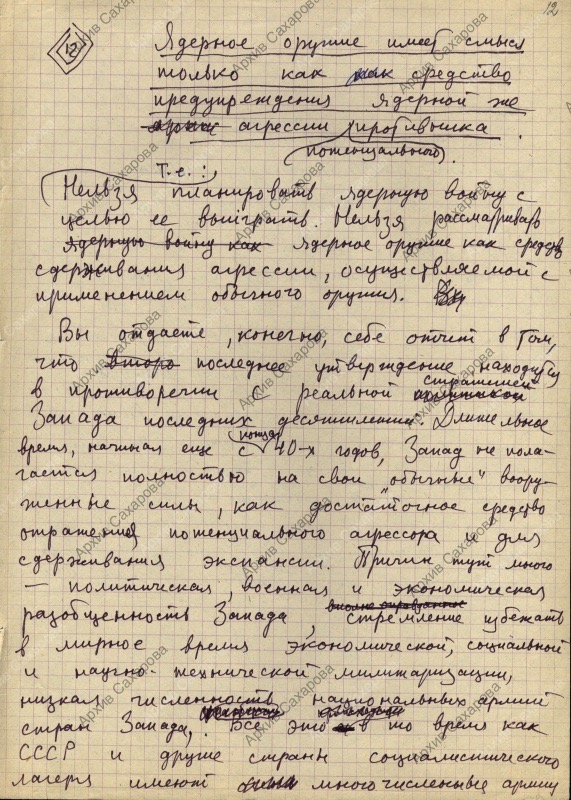 12
12
Ядерное оружие имеет смысл
только как средство
предупреждения ядерной же
агрессии противника
потенциального.
т.е.:
Нельзя планировать ядерную войну с
целью ее выиграть. Нельзя рассматривать
ядерную войну как ядерное оружие как средство
сдерживания агрессии, осуществляемой с
применением обычного оружия.
Вы отдаете, конечно, себе отчет в том,
что последнее утверждение находится
в противоречии с реальной стратегией
Запада последних десятилетий. Длительное
время, начиная еще с конца 40-х годов, Запад не пола-
гается полностью на свои "обычные" воору-
женные силы, как достаточное средство
отражения потенциального агрессора и для
сдерживания экспансии. Причин тут много
— политическая, военная и экономическая
разобщенность Запада, стремление избежать
в мирное время экономической, социальной
и научно-технической милитаризации,
низкая численность национальных армий
стран Запада. Все это в то время как
СССР и другие страны социалистического
лагеря имеют многочисленные армии
Архив Сахарова